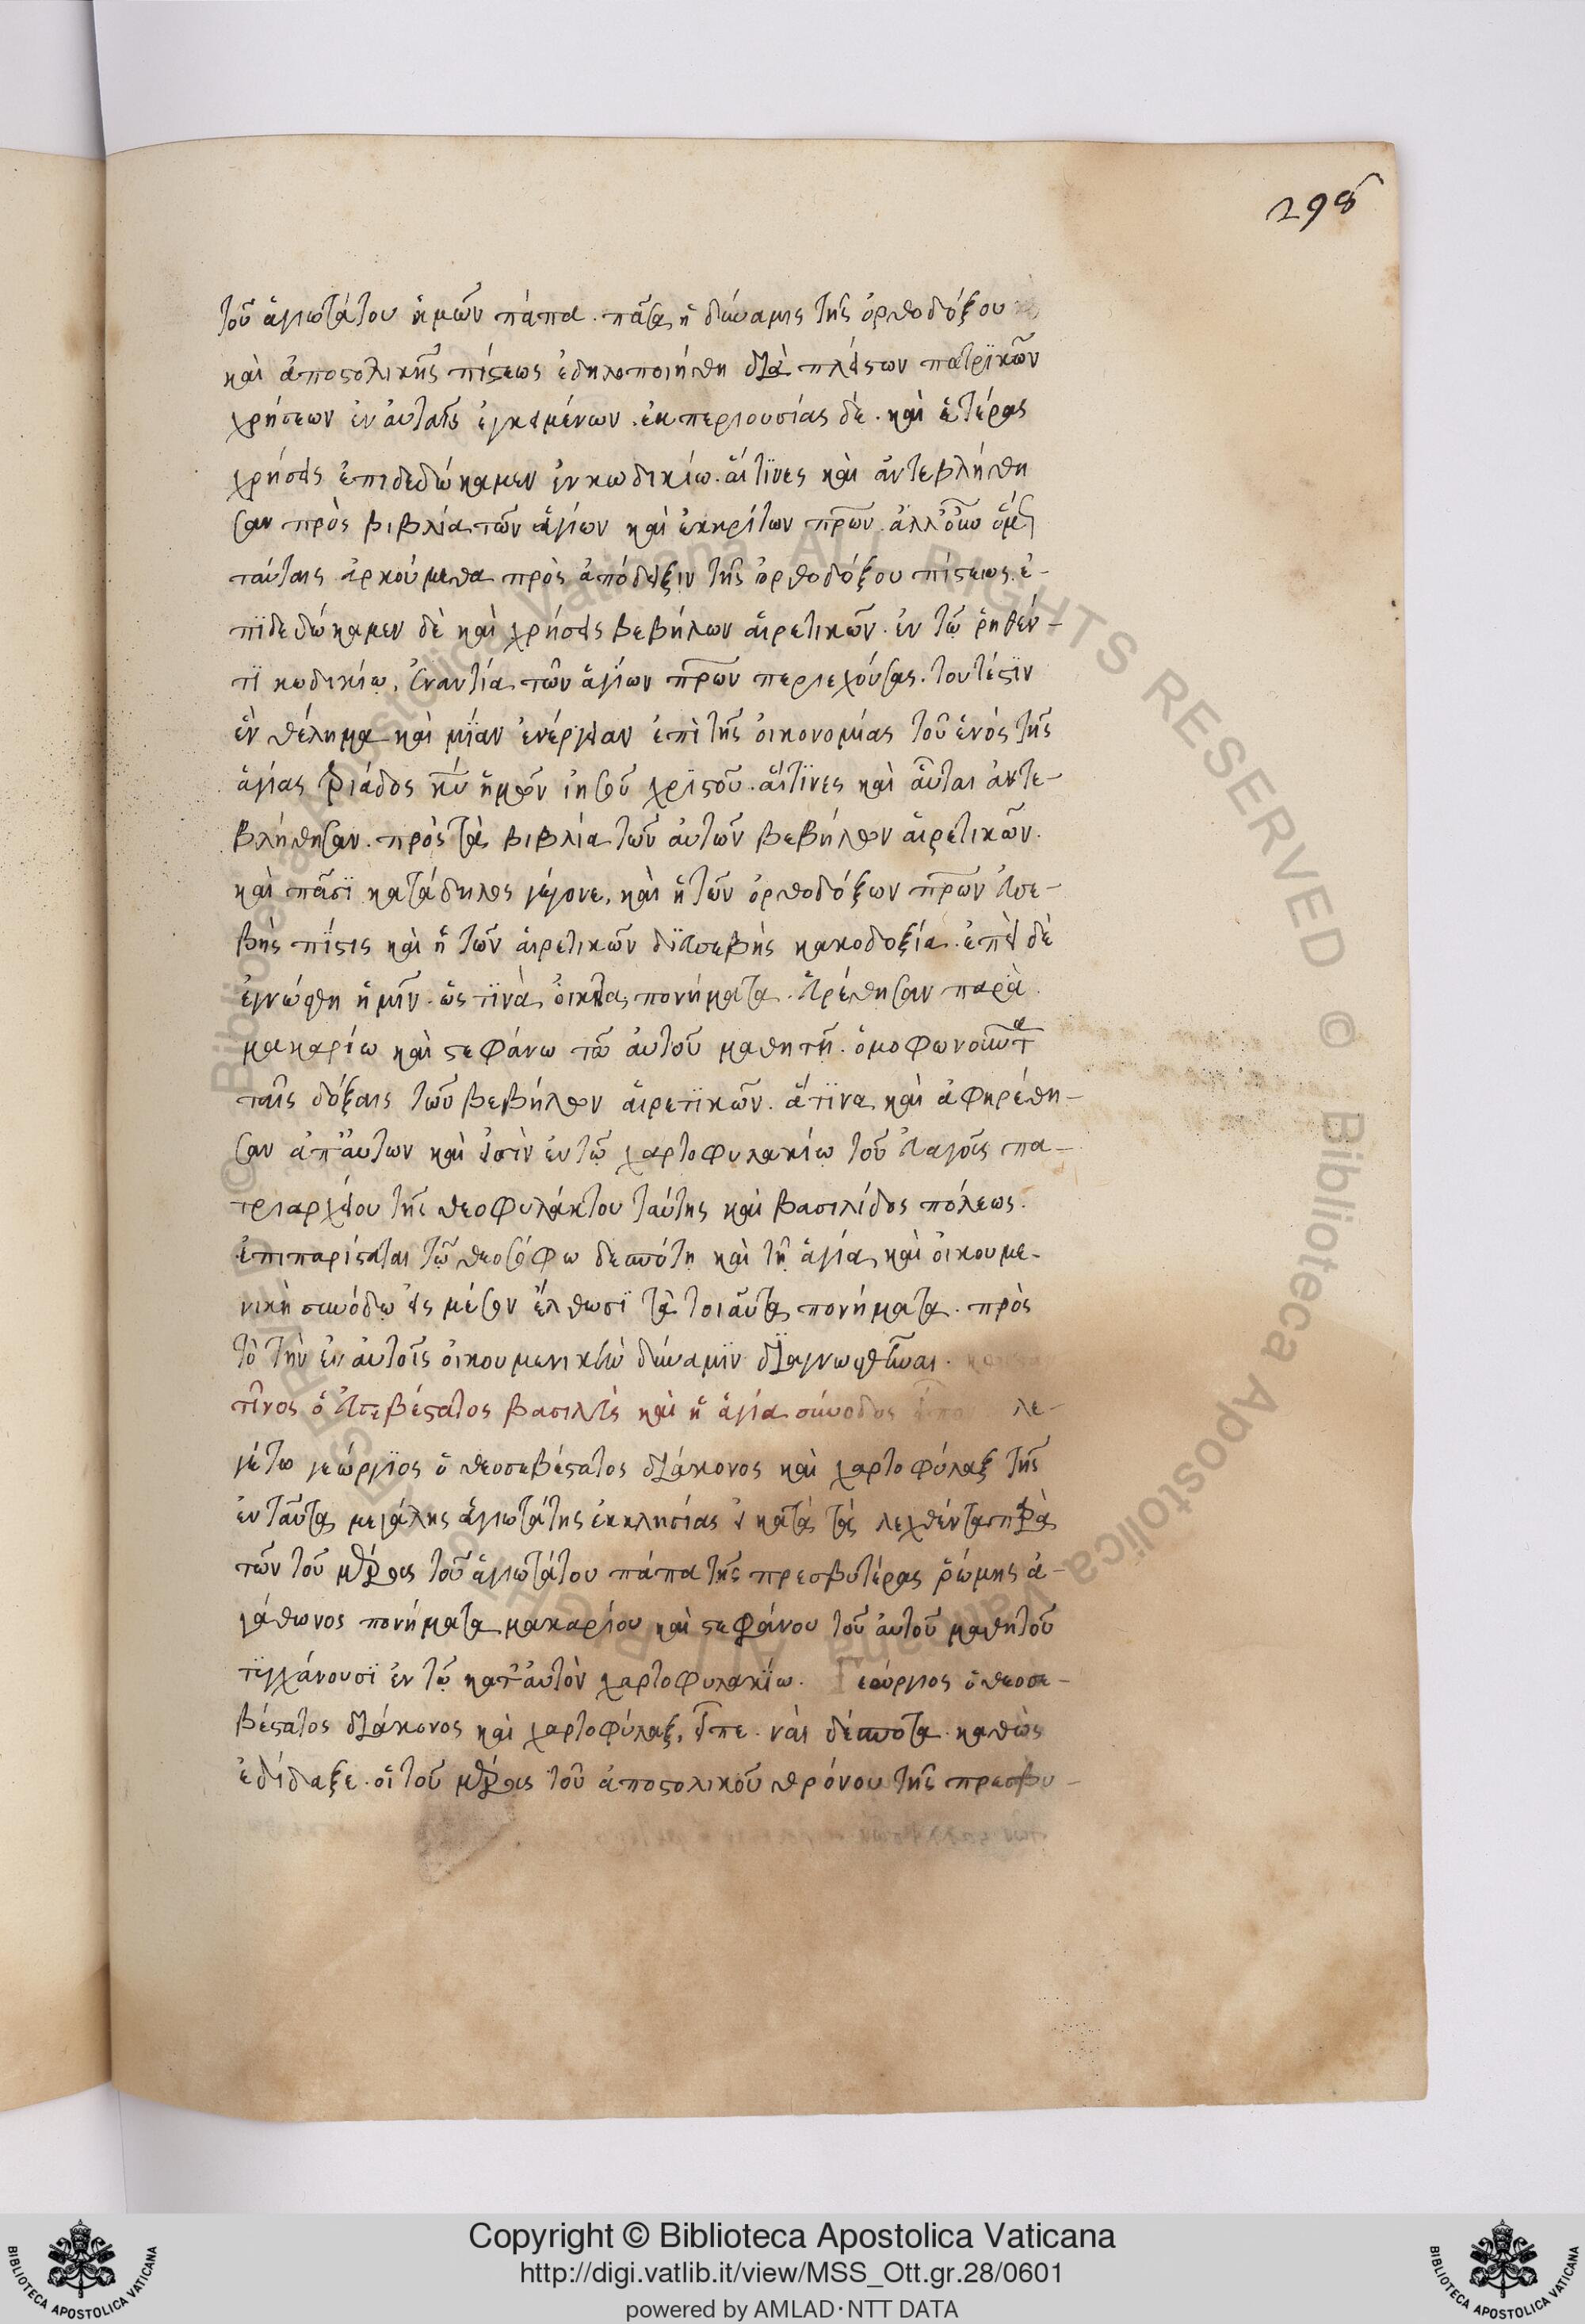 298
τοῦ ἁγιωτάτου ἡμῶν πάπα. πᾶσα ἡ δύναμις τῆς ὀρθοδόξου
καὶ ἀποστολικῆς πίστεως ἐδηλοποιήθη διὰ πλείστων πατρϊκῶν
χρήσεων ἐν αὐταῖς ἐγκειμένων. ἐκ περιουσίας δὲ. καὶ ἑτέρας
χρήσεις ἐπιδεδώκαμεν ἐν κωδικίω. αἵ τϊνες καὶ ἀντεβλήθη
σαν πρὸς βιβλία τῶν ἁγίων καὶ ἐκκρίτων πρῶν. ἀλλ'
ταύταις ἀρκούμεθα πρὸς ἀπόδειξιν τῆς ὀρθοδόξου πίστεως. ἐ-
πϊδεδώκαμεν δὲ καὶ χρήσεις βεβήλων αἱρετικῶν. ἐν τῶ ῥηθέν-
τϊ κωδικίω, ἐναντία τῶν ἁγίων πρῶν περιεχούσας. τουτέστϊν
ἓν θέλημα καὶ μϊαν ἐνέργειαν ἐπὶ τῆς οἰκονομίας τοῦ ἑνὸς τῆς
ἁγίας τριάδος κυ ἡμῶν ἰησοῦ χρϊστοῦ. αἵτϊνες καὶ αὗται ἀντε-
βλήθησαν. πρὸς τὰ βιβλία τῶν αὐτῶν βεβήλων αἱρετικῶν.
καὶ πᾶσϊ κατάδηλος γέγονε, καὶ ἡ τῶν ὀρθοδόξων πρῶν εὐσε-
βὴς πίστις καὶ ἡ τῶν αἱρετικῶν δϋσσεβὴς κακοδοξία. ἐπεὶ δὲ
ἐγνώσθη ἡμῖν. ὥς τϊνὰ οἰκεῖα πονήματα. εὑρέθησαν παρὰ
μακαρίω καὶ στεφάνω τῶ αὐτοῦ μαθητῆ. ὁμοφωνοῦντα
ταῖς δόξαις τῶν βεβήλων αἱρετϊκῶν. ἅτϊνα καὶ ἀφηρέθη-
σαν ἀπ' αὐτων καὶ εἰσὶν ἐν τῶ χαρτοφυλακίω τοῦ εὐαγοῦς πα-
τριαρχείου τῆς θεοφυλάκτου ταύτης καὶ βασιλίδος πόλεως.
ἐπιπαρίσταται τῶ θεοσόφω δεσπότη καὶ τῆ ἁγία καὶ οἰκουμε-
νικὴ συνόδω εἰς μέσον ἔλθωσϊ τὰ τοιαῦτα πονήματα. πρὸς
τὸ τὴν ἐν αὐτοῖς οἰκουμενικὴν δύναμϊν διαγνωσθῆναι.
τῖνος ὁ εὐσεβέστατος βασιλεὺς καὶ ἡ ἁγία σύνοδος εἶπον λε-
γέτω γεώργϊος ὁ θεοσεβέστατος διάκονος καὶ χαρτοφύλαξ τῆς
ἐνταῦτα μεγάλης ἁγιωτάτης ἐκκλησίας εἰ κατὰ τὰ λεχθέντα παρὰ
τῶν τοῦ μέρους τοῦ ἁγιωτάτου πάπα τῆς πρεσβυτέρας ῥώμης ἀ-
γάθωνος πονήματα μακαρίου καὶ στεφάνου τοῦ αὐτοῦ μαθητοῦ
τϋγχάνουσϊ ἐν τῶ κατ' αὐτὸν χαρτοφυλακϊω. Γεώργιος ὁ θεοσε-
βέστατος διάκονος καὶ χαρτοφύλαξ, εἶπε. ναὶ δέσποτα. καθὼς
ἐδίδαξε. οἱ τοῦ μέρους τοῦ ἀποστολικοῦ θρόνου τῆς πρεσβυ-
© Biblioteca Apostolica Vaticana ALL RIGHTS RESERVED
Copyright © Biblioteca Apostolica Vaticana
http://digi.vatlib.it/view/MSS_Ott.gr.28/0601
powered by AMLAD·NTT DATA
BIBLIOTECA APOSTOLICA VATICANA
BIBLIOTECA APOSTOLICA VATICANA